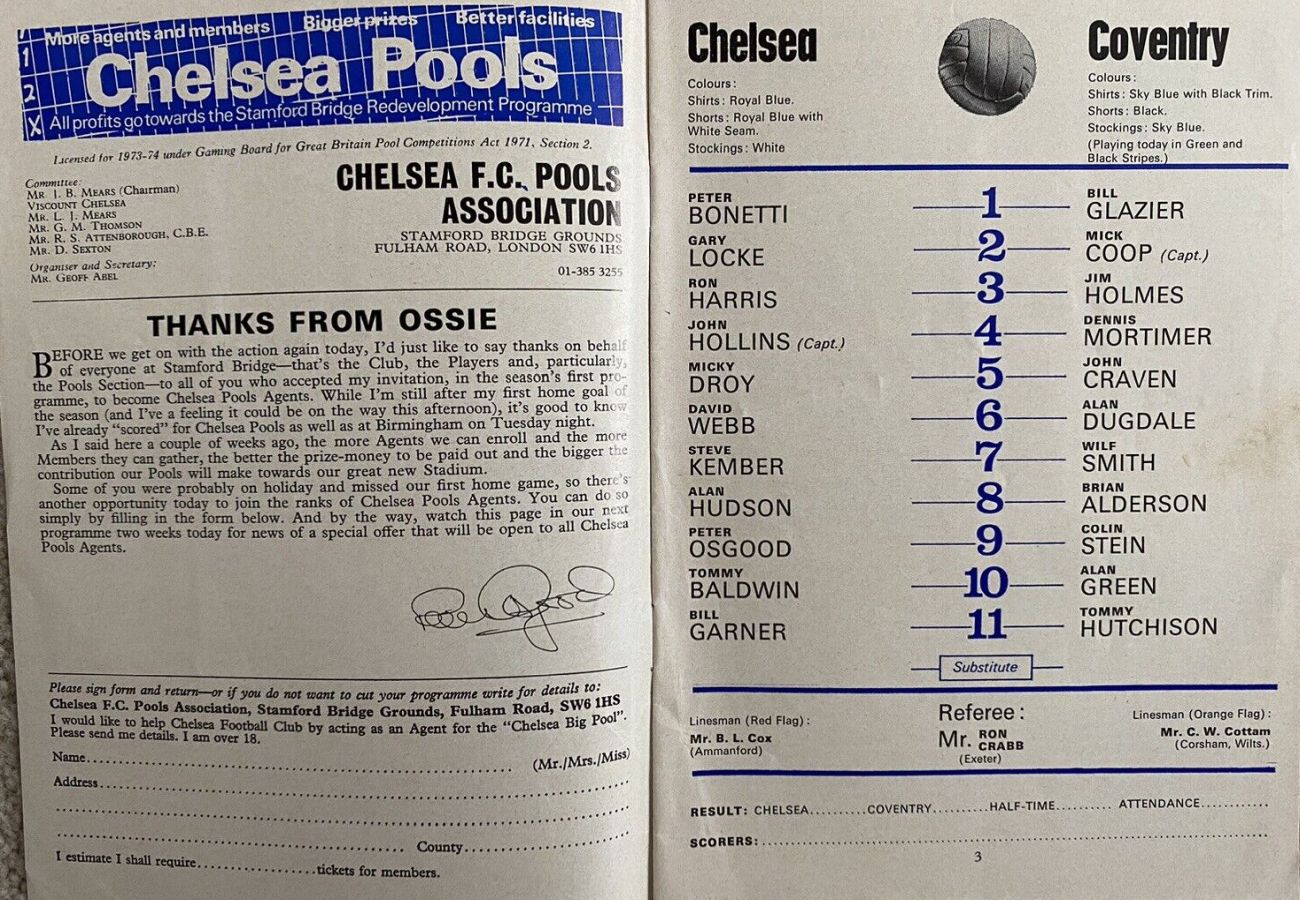 More agents and members Bigger prizes Better facilities
1
2
X
Chelsea Pools
All profits go towards the Stamford Bridge Redevelopment Programme
Licensed for 1973-74 under Gaming Board for Great Britain Pool Competitions Act 1971, Section 2.
Committee:
MR. J. B. MEARS (Chairman)
VISCOUNT CHELSEA
MR. L. J. MEARS
MR. G. M. THOMSON
MR. R. S. ATTENBOROUGH, C.B.E.
MR. D. SEXTON
Organiser and Secretary:
MR. GEOFF ABEL
CHELSEA F.C. POOLS
ASSOCIATION
STAMFORD BRIDGE GROUNDS
FULHAM ROAD, LONDON SW6 1HS
01-385 3255
THANKS FROM OSSIE
BEFORE we get on with the action again today, I'd just like to say thanks on behalf
of everyone at Stamford Bridge—that's the Club, the Players and, particularly,
the Pools Section—to all of you who accepted my invitation, in the season's first pro-
gramme, to become Chelsea Pools Agents. While I'm still after my first home goal of
the season (and I've a feeling it could be on the way this afternoon), it's good to know
I've already "scored" for Chelsea Pools as well as at Birmingham on Tuesday night.
As I said here a couple of weeks ago, the more Agents we can enroll and the more
Members they can gather, the better the prize-money to be paid out and the bigger the
contribution our Pools will make towards our great new Stadium.
Some of you were probably on holiday and missed our first home game, so there's
another opportunity today to join the ranks of Chelsea Pools Agents. You can do so
simply by filling in the form below. And by the way, watch this page in our next
programme two weeks today for news of a special offer that will be open to all Chelsea
Pools Agents.
Please sign form and return—or if you do not want to cut your programme write for details to:
Chelsea F.C. Pools Association, Stamford Bridge Grounds, Fulham Road, SW6 1HS
I would like to help Chelsea Football Club by acting as an Agent for the "Chelsea Big Pool".
Please send me details. I am over 18.
Name.......................................................... (Mr./Mrs./Miss)
Address..........................................................
..........................................................
.......................................................... County..............................
I estimate I shall require....................tickets for members.
Chelsea
Colours:
Shirts: Royal Blue.
Shorts: Royal Blue with
White Seam.
Stockings: White
Coventry
Colours:
Shirts: Sky Blue with Black Trim.
Shorts: Black.
Stockings: Sky Blue.
(Playing today in Green and
Black Stripes.)
PETER BONETTI 1 BILL GLAZIER
GARY LOCKE 2 MICK COOP (Capt.)
RON HARRIS 3 JIM HOLMES
JOHN HOLLINS (Capt.) 4 DENNIS MORTIMER
MICKY DROY 5 JOHN CRAVEN
DAVID WEBB 6 ALAN DUGDALE
STEVE KEMBER 7 WILF SMITH
ALAN HUDSON 8 BRIAN ALDERSON
PETER OSGOOD 9 COLIN STEIN
TOMMY BALDWIN 10 ALAN GREEN
BILL GARNER 11 TOMMY HUTCHISON
Substitute
Linesman (Red Flag):
Mr. B. L. Cox
(Ammanford)
Referee:
Mr. RON CRABB
(Exeter)
Linesman (Orange Flag):
Mr. C. W. Cottam
(Corsham, Wilts.)
RESULT: CHELSEA..........COVENTRY..........HALF-TIME.......... ATTENDANCE............
SCORERS:..........................................................
3